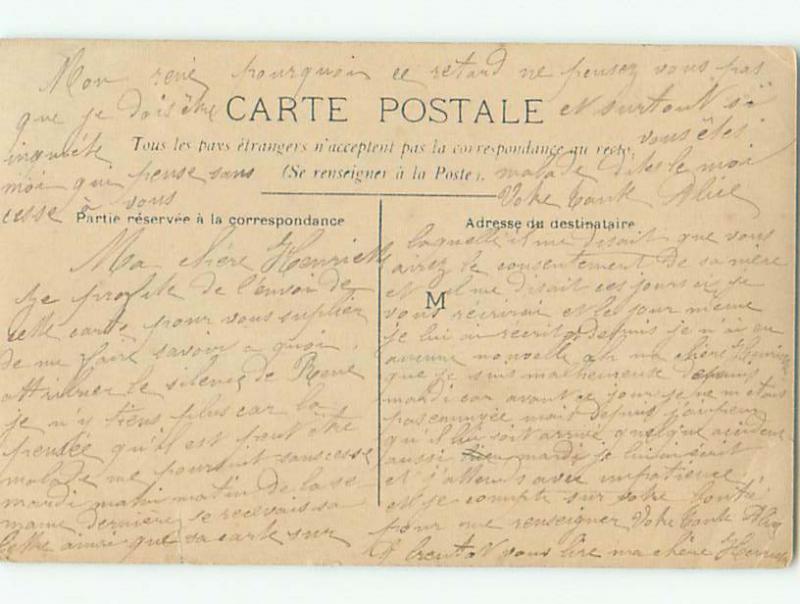 Mon rené pourquoi ce retard ne pensez vous pas
que je dois être
CARTE POSTALE
et surtout si
inquiéte
Tous les pays étrangers n'acceptent pas la correspondance au recto,
vous êtes
moi qui pense sans
(Se renseigner à la Poste).
malade dites le moi
cesse à vous
Votre tante Alice
Partie réservée à la correspondance
Ma chère Henriette
Je profite de l'envoi de
cette carte pour vous suplier
de me faire savoir a quoi
attribuer le silence de René
je n'y tiens plus car la
pensée qu'il est peut être
malade me poursuit sans cesse
mardi matin de la se
maine dernière je recevais sa
lettre ainsi que sa carte sur
Adresse du destinataire
M
laquelle il me disait que vous
aviez le consentement de sa mère
et il me disait ces jours ci je
vous récrirai et le jour même
je lui ai recrit depuis je n'ai eu
aucune nouvelle ah ma chère Henriette
que je suis malheureuse depuis
mardi car avant ce jour je ne m'étais
pas ennuyée mais depuis
qu'il lui soit arrivé quelque accident
aussi mardi je lui
et j'attends avec impatience
et je compte sur votre bonté
pour me renseigner Votre tante Alice
A bientot vous lire ma chère Henriette